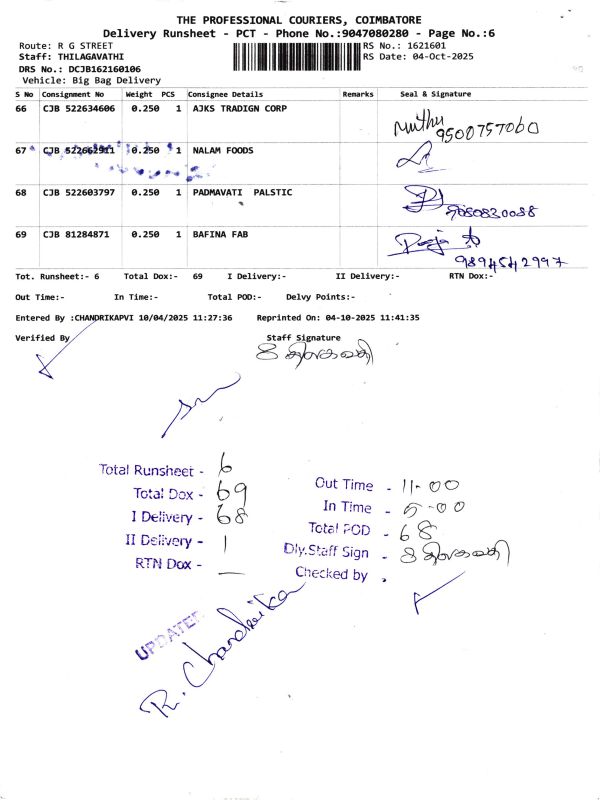 THE PROFESSIONAL COURIERS, COIMBATORE
Delivery Runsheet - PCT - Phone No.:9047080280 - Page No.:6
Route: R G STREET
RS No.: 1621601
Staff: THILAGAVATHI
RS Date: 04-Oct-2025
DRS No.: DCJB162160106
Vehicle: Big Bag Delivery
S No Consignment No Weight PCS Consignee Details Remarks Seal & Signature
66 CJB 522634606 0.250 1 AJKS TRADIGN CORP
Muthu
9500757060
67 CJB 522662911 0.250 1 NALAM FOODS
68 CJB 522603797 0.250 1 PADMAVATI PALSTIC
9080820088
69 CJB 81284871 0.250 1 BAFINA FAB
Raja
9894542997
Tot. Runsheet:- 6 Total Dox:- 69 I Delivery:- II Delivery:- RTN Dox:-
Out Time:- In Time:- Total POD:- Delvy Points:-
Entered By :CHANDRIKAPVI 10/04/2025 11:27:36 Reprinted On: 04-10-2025 11:41:35
Verified By Staff Signature
Total Runsheet - 6
Total Dox - 69
I Delivery - 68
II Delivery - 1
RTN Dox - —
Out Time - 11-00
In Time - 5-00
Total POD - 68
Dly.Staff Sign -
Checked by .
UPDATED
R. Chandrika